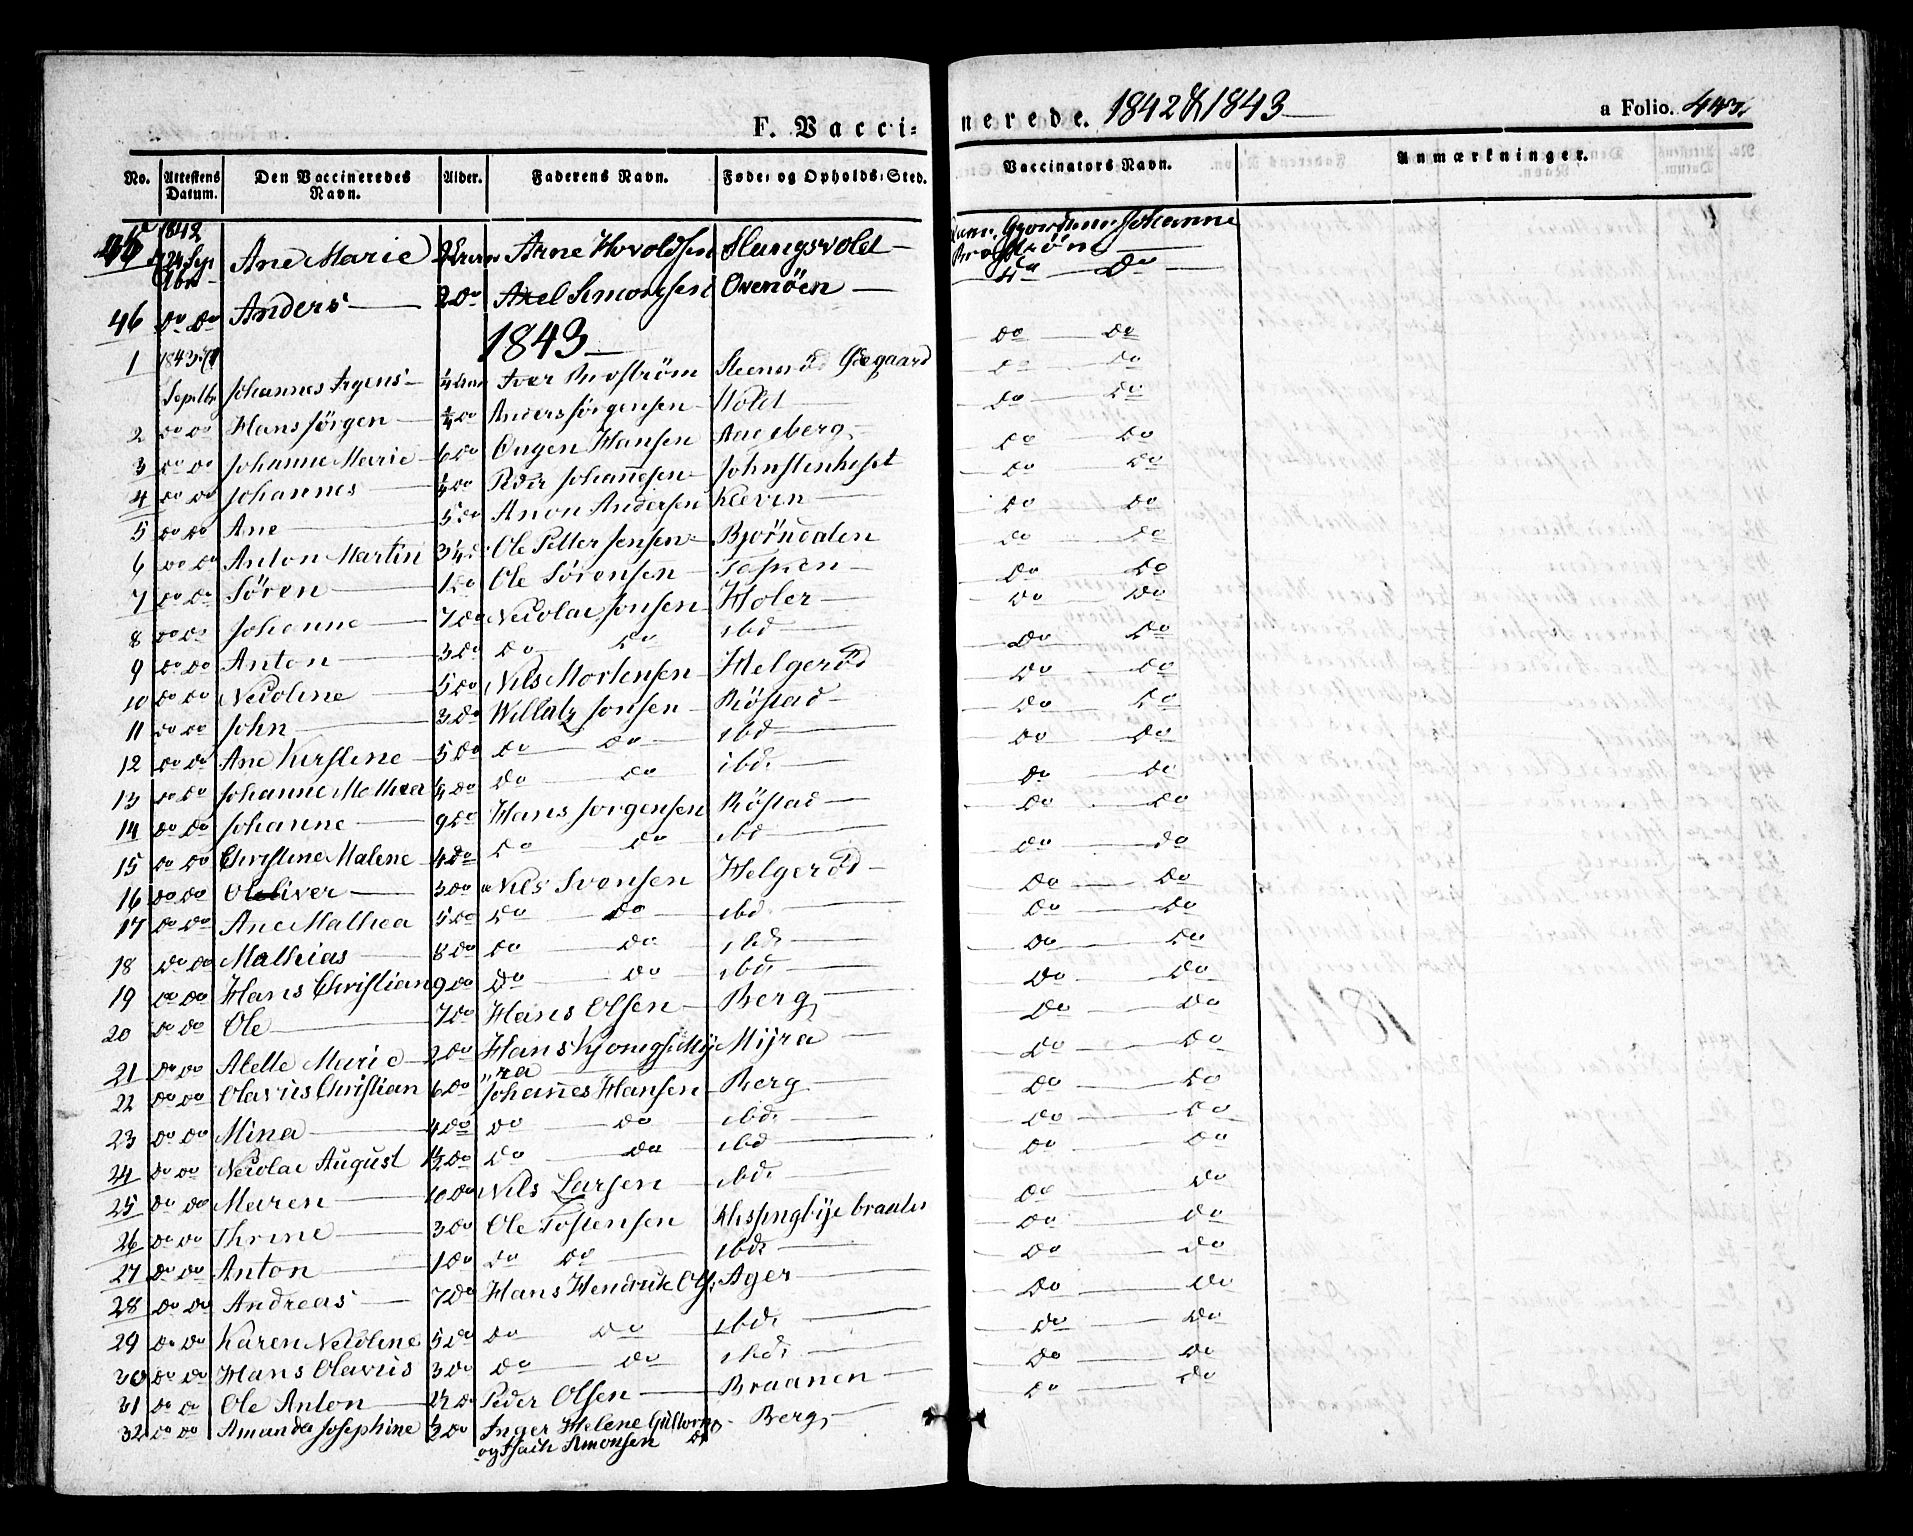 F. Vacci-
nerede. 1842 & 1843
a Folio. 443.
No. Attestens Datum. Den Vaccineredes Navn. Alder. Faderens Navn. Føde- og Opholds-Sted. Vaccinators Navn. Anmærkninger.
1842
45 24 Sep Ane Marie Arne Hovoldsen Slangsvold Johanne
46 do do Anders 2 do Axel Simonsen Ovenöen do
1843
1 1843 Septbr Johannes Irgens 1/4 Iver Steensröd Ødegaard do do
2 do do Hans Jörgen 1/4 do Anders Jörgensen Hold do do
3 do do Johanne Marie 6 do Hansen do do
4 do do Johannes 1/4 do Peder Johannesen do do
5 do do Ane 5 do Anon Andersen Kleven do do
6 do do Anton Martin 3 1/4 do Ole Petter Jensen Bjørndalen do do
7 do do Sören 1 do Ole Sörensen do do
8 do do Johanne 7 do Nicolai Jonsen Holer do do
9 do do Anton 3 do do do ibd do do
10 do do Nicoline 5 do Nils Mortensen Helgeröd do do
11 do do John 3 do Willatz Jonsen Röstad do do
12 do do Ane Kirstine 5 do do do ibd do do
13 do do Johanne Mathea 1/4 do do do ibd. do do
14 do do Johanne 9 do Hans Jörgensen Röstad do do
15 do do Christine Malene 4 do do do ibd do do
16 do do Oleliver 3 do Nils Svensen Helgeröd do do
17 do do Ane Mathea 5 do do do ibd. do do
18 do do Mathias 8 do do do ibd. do do
19 do do Hans Christian 9 do do do ibd. do do
20 do do Ole 7 do Hans Olsen Berg do do
21 do do Alette Marie 2 do Hans My- Mijra do do
"ra
22 do do Olavus Christian 6 do Johannes Hansen Berg do do
23 do do Mina 4 do do do ibd. do do
24 do do Nicolai August 1 1/2 do do do ibd do do
25 do do Maren 10 do Nils Larsen ibd. do do
26 do do Thrine 3 do Ole Tostensen do do
27 do do Anton 1 do do do ibd. do do
28 do do Andreas 7 do Hans Hendrik Ols. Ager do do
29 do do Karen Nicoline 5 do do do ibd. do do
30 do do Hans Olavus 3 do do do ibd. do do
31 do do Ole Anton 2 1/2 do Peder Olsen Braanen do do
32 do do Amanda Josephine 1/2 do Inger Helene Berg,
og Isach Simonsen